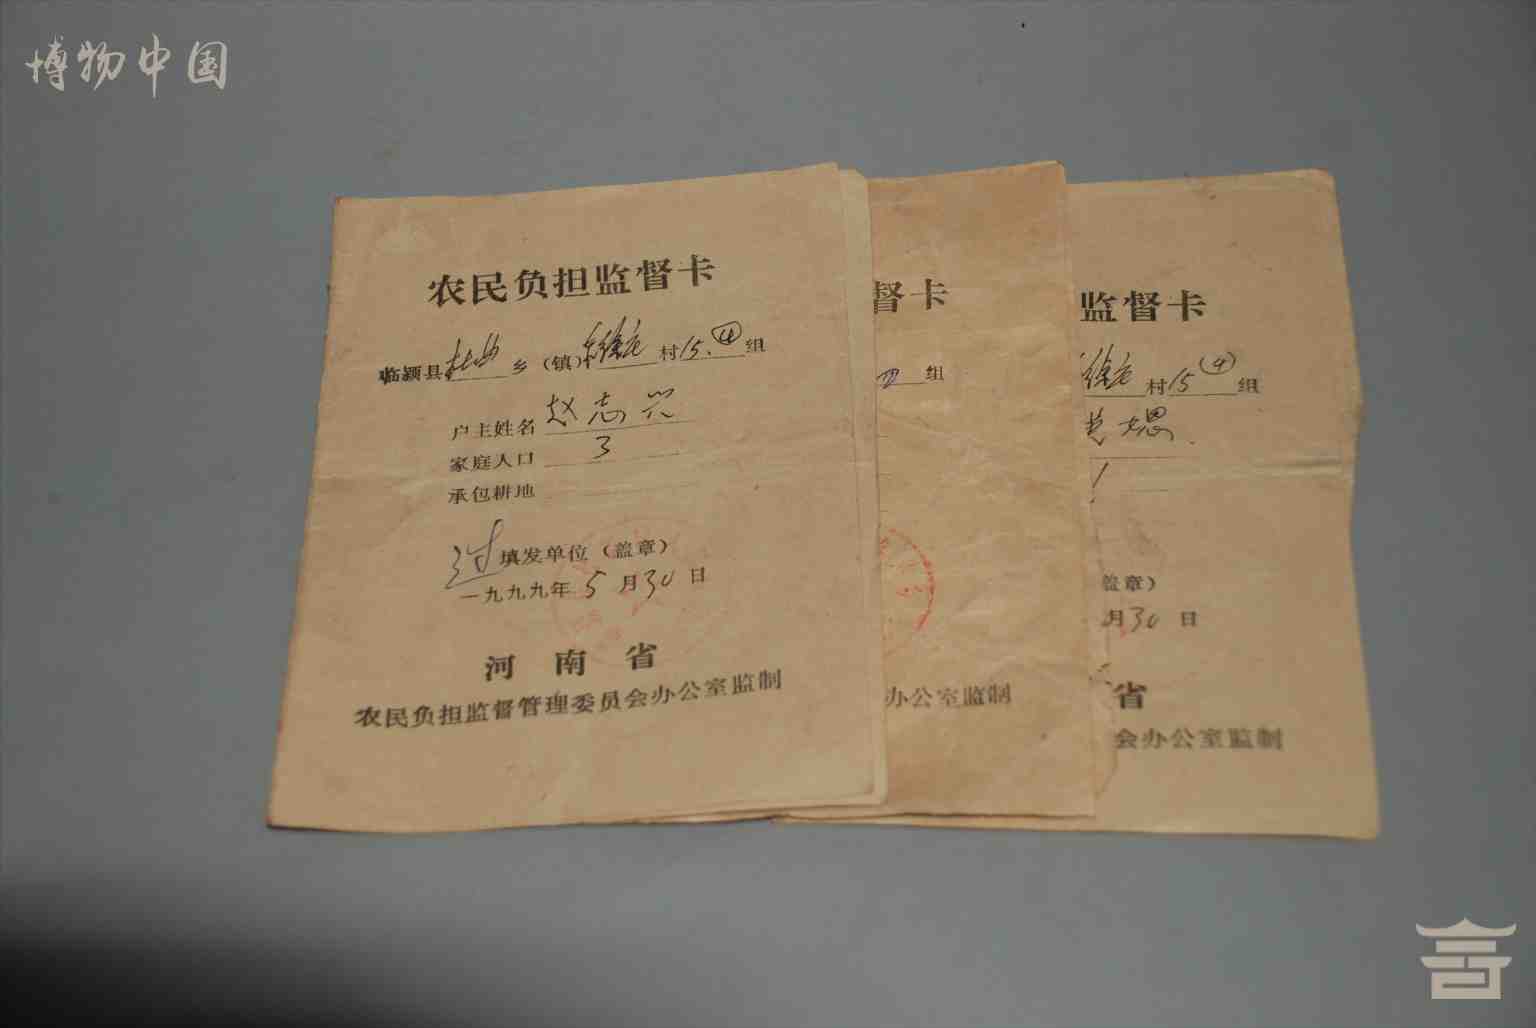 博物中国
农民负担监督卡
临颍县杜曲乡(镇)徐庄村15.④组
户主姓名 赵志兴
家庭人口 3
承包耕地
填发单位(盖章)
一九九九年5月30日
河南省
农民负担监督管理委员会办公室监制
督卡
四组
办公室监制
监督卡
徐庄村15④组
1
盖章)
月30日
省
会办公室监制